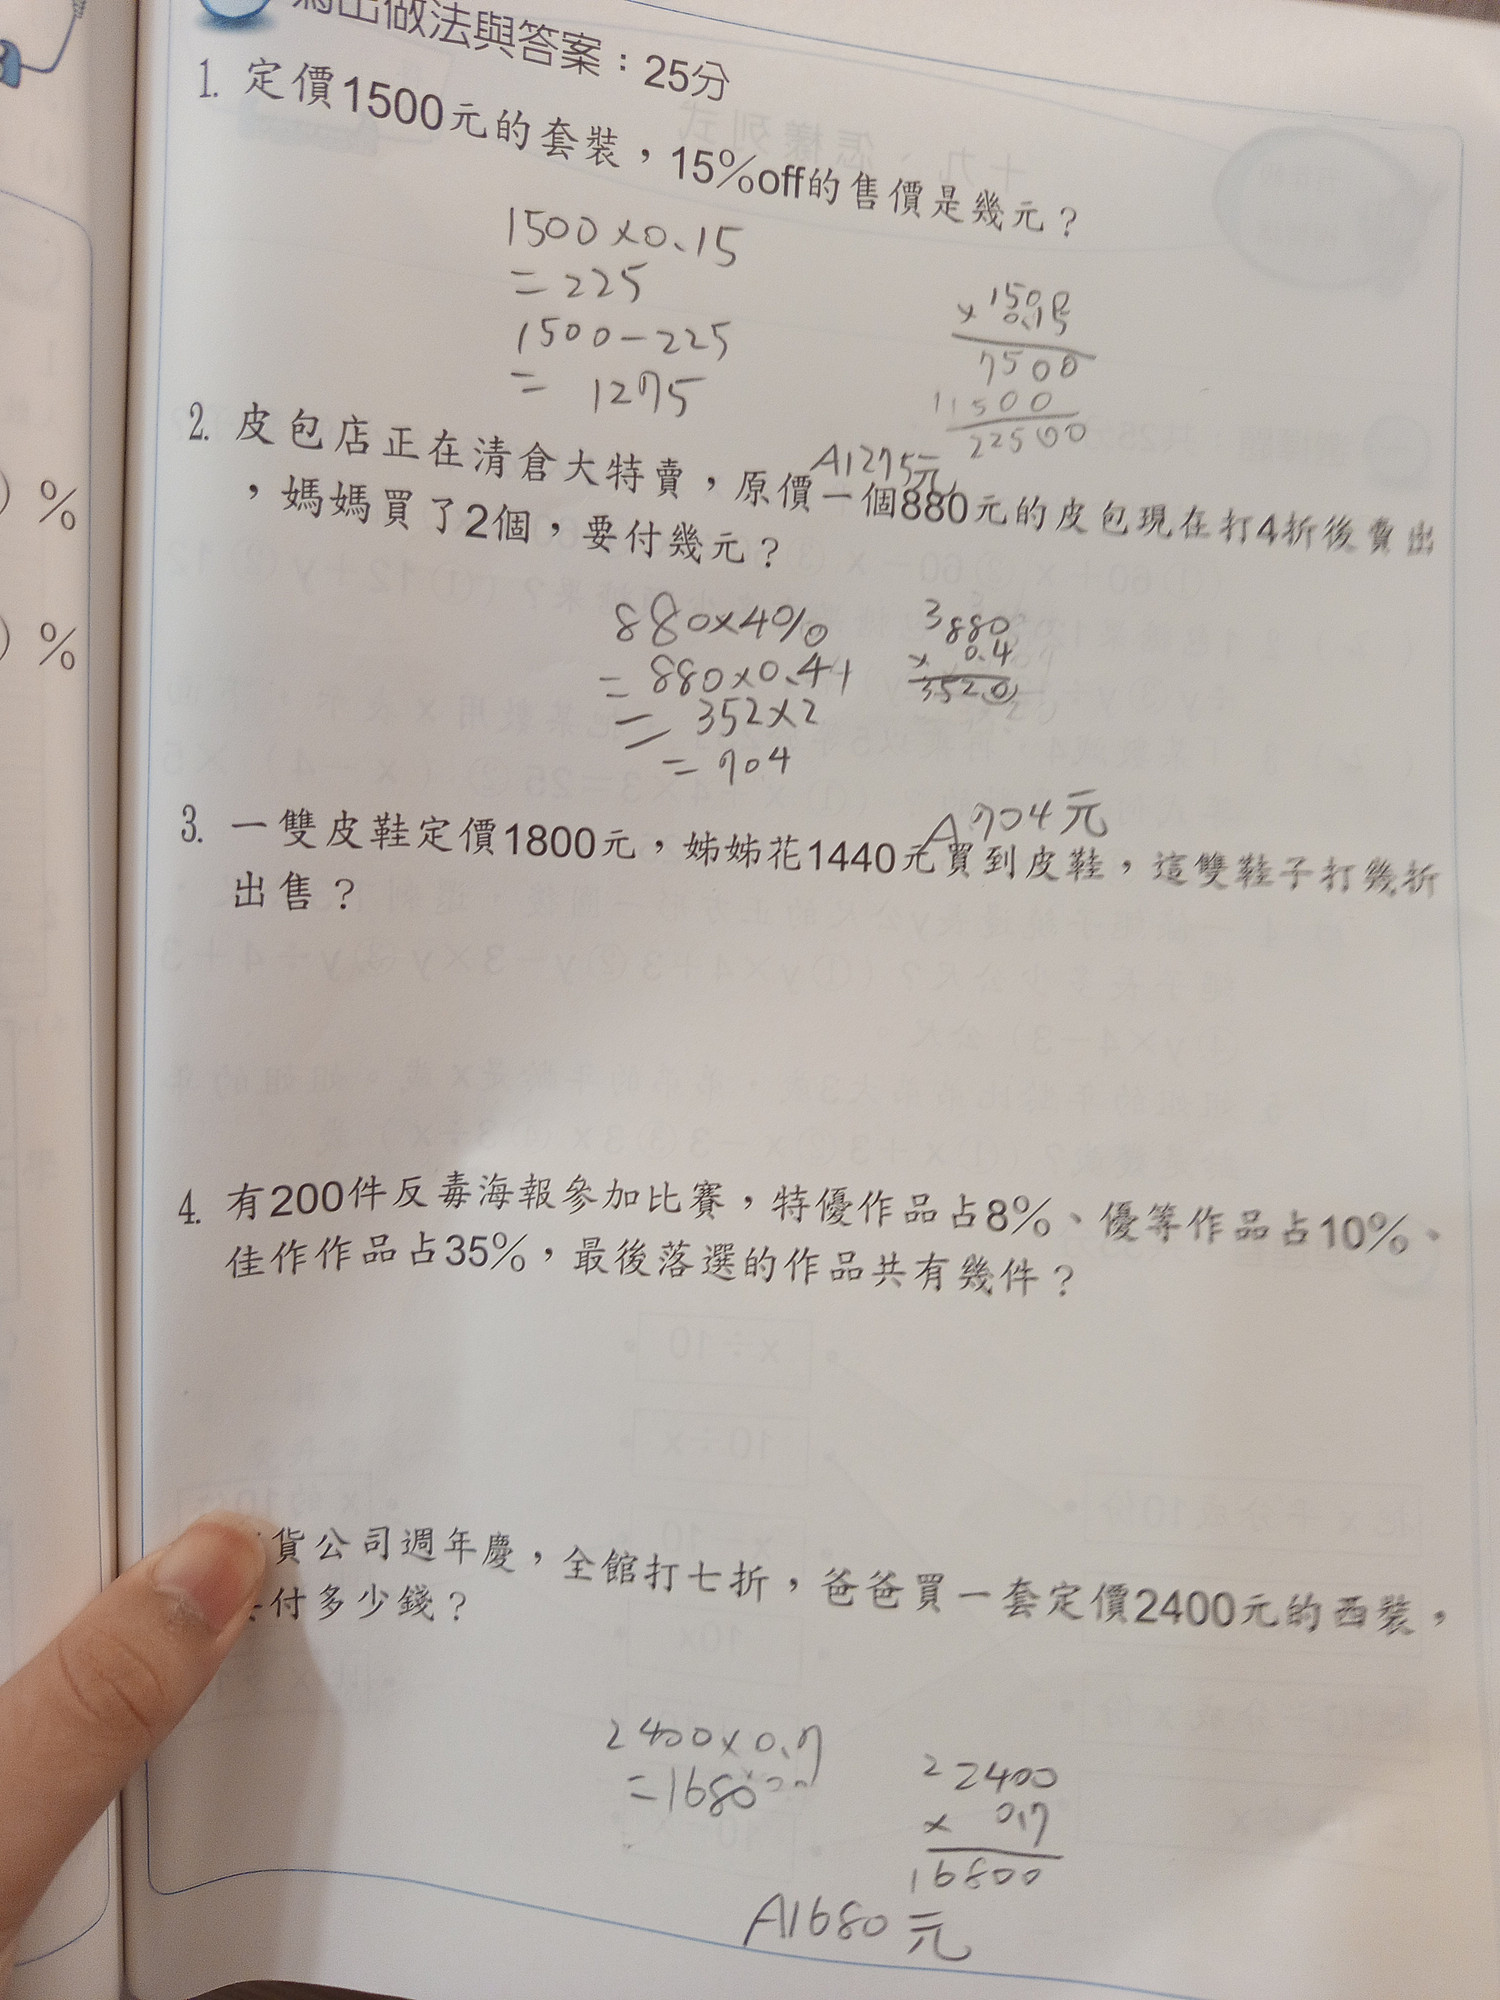 寫出做法與答案：25分
1. 定價1500元的套裝，15%off的售價是幾元？
1500×0.15
=225
1500-225
= 1275
1500
× 0.15
7500
1500
22500
A1275元
2. 皮包店正在清倉大特賣，原價一個880元的皮包現在打4折後賣出
，媽媽買了2個，要付幾元？
880×4%
=880×0.4
= 352×2
=704
3
880
× 0.4
352.0
A704元
3. 一雙皮鞋定價1800元，姊姊花1440元買到皮鞋，這雙鞋子打幾折
出售？
4. 有200件反毒海報參加比賽，特優作品占8%、優等作品占10%、
佳作作品占35%，最後落選的作品共有幾件？
貨公司週年慶，全館打七折，爸爸買一套定價2400元的西裝，
付多少錢？
2400×0.7
=1680
2 2400
× 0.7
16800
A1680元
) %
) %